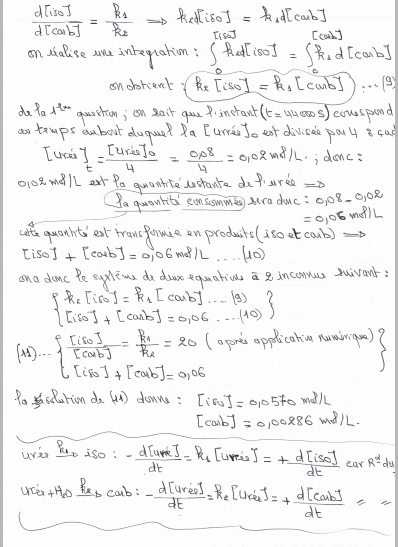 d[iso]/d[carb] = k1/k2 ⟹ k2d[iso] = k1d[carb]
on réalise une integration : ∫₀^[iso] k2d[iso] = ∫₀^[carb] k1 d[carb]
on obtient : k2[iso] = k1[carb] ... (9)
de la 1ère question ; on sait que l'instant (t = 44000s) correspond
au temps au bout duquel la [Urée]0 est divisée par 4
[Urée]t = [Urée]0/4 = 0,08/4 = 0,02 mol/L . ; donc :
0,02 mol/L est la quantité restante de l'urée ⟹
la quantité consommée sera donc : 0,08 - 0,02
= 0,06 mol/L
cette quantité est transformée en produits (iso et carb) ⟹
[iso] + [carb] = 0,06 mol/L .... (10)
on a donc le système de deux equations à 2 inconnues suivant :
{ k2[iso] = k1[carb] .... (9)
[iso] + [carb] = 0,06 .... (10) }
(11)... { [iso]/[carb] = k1/k2 = 20 (après application numérique)
[iso] + [carb] = 0,06 }
la solution de (11) donne : [iso] = 0,0570 mol/L
[carb] = 0,00286 mol/L.
urée k1→ iso : - d[urée]/dt = k1[Urée] = + d[iso]/dt car
urée + H2O k2→ carb : - d[Urée]/dt = k2[Urée] = + d[carb]/dt " "